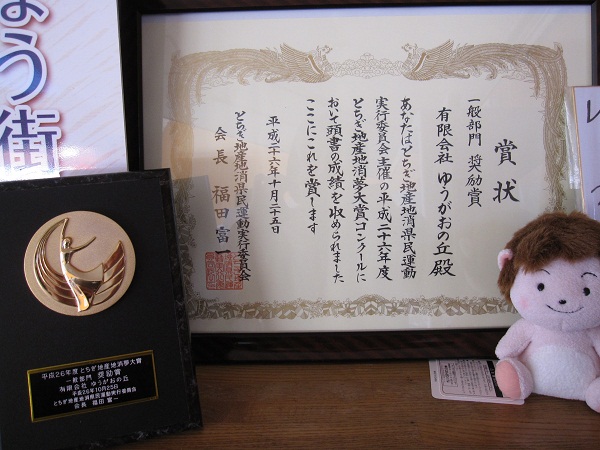 賞状
一般部門 奨励賞
有限会社 ゆうがおの丘殿
あなたはとちぎ地産地消県民運動
実行委員会主催の平成二十六年度
とちぎ地産地消夢大賞コンクールに
おいて頭書の成績を収められました
ここにこれを賞します
平成二十六年十月二十五日
とちぎ地産地消県民運動実行委員会
会長 福田富一
よう街
平成26年度 とちぎ地産地消夢大賞
一般部門 奨励賞
有限会社 ゆうがおの丘
平成26年10月25日
とちぎ地産地消県民運動実行委員会
会長 福田 富一